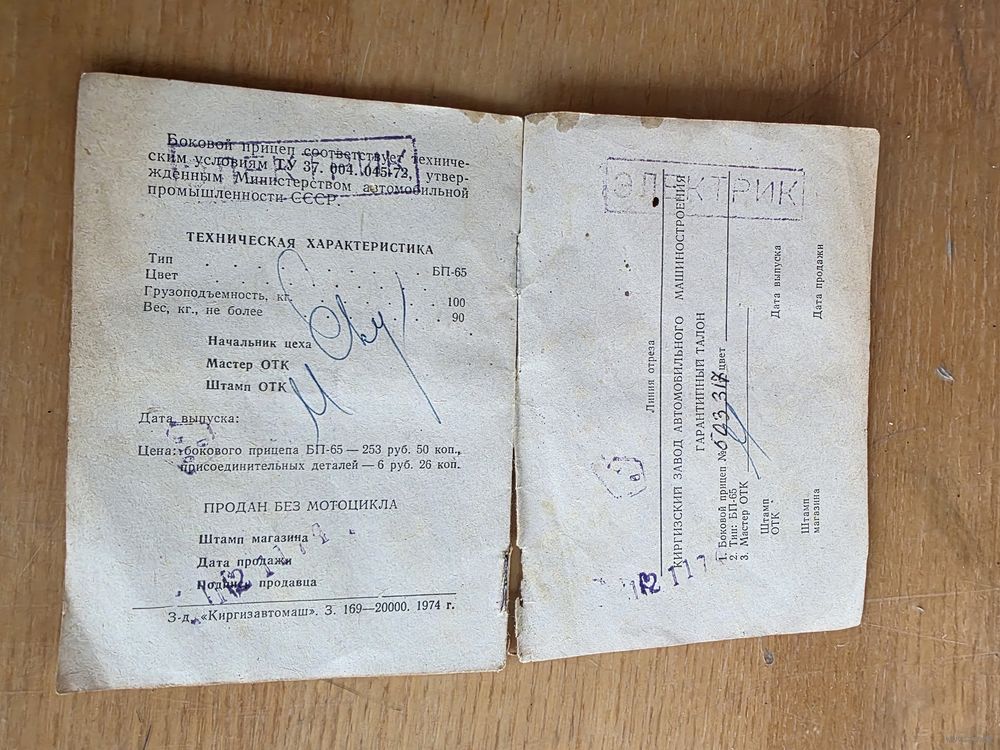 Боковой прицеп соответствует техниче-
ским условиям ТУ 37. 004. 045-72, утвер-
жденным Министерством автомобильной
промышленности СССР.
ТЕХНИЧЕСКАЯ ХАРАКТЕРИСТИКА
Тип . . . . . . . БП-65
Цвет . . . . . . .
Грузоподъемность, кг. . . . 100
Вес, кг., не более . . . . 90
Начальник цеха
Мастер ОТК
Штамп ОТК
Дата выпуска:
Цена: бокового прицепа БП-65 — 253 руб. 50 коп.,
присоединительных деталей — 6 руб. 26 коп.
ПРОДАН БЕЗ МОТОЦИКЛА
Штамп магазина
Дата продажи
Подпись продавца
З-д. «Киргизавтомаш». З. 169—20000. 1974 г.
ЭЛЕКТРИК
Линия отреза
КИРГИЗСКИЙ ЗАВОД АВТОМОБИЛЬНОГО МАШИНОСТРОЕНИЯ
ГАРАНТИПНЫЙ ТАЛОН
1. Боковой прицеп № цвет
2. Тип: БП-65
3. Мастер ОТК
Штамп ОТК Дата выпуска
Штамп магазина Дата продажи